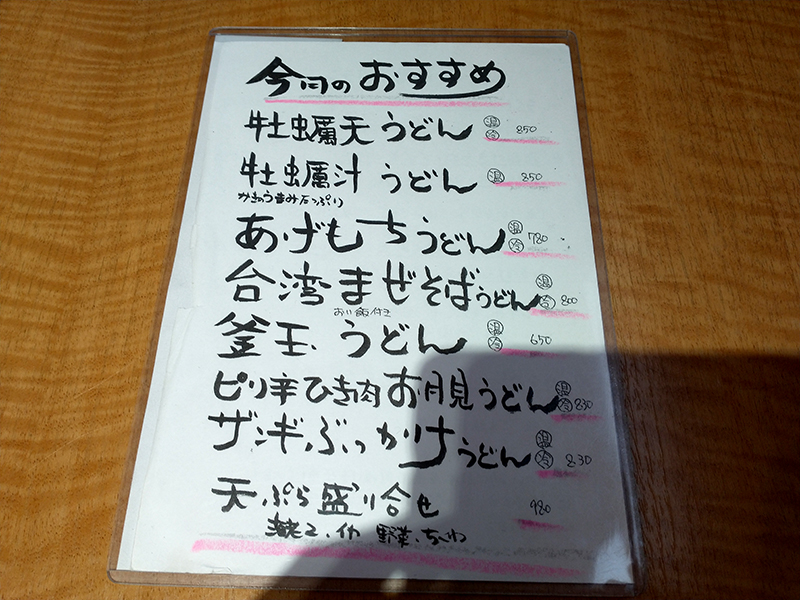 今月のおすすめ
牡蠣天うどん 温 冷 850
牡蠣汁うどん 温 850
かきのうまみたっぷり
あげもちうどん 温 冷 780
台湾まぜそばうどん 温 冷 800
おい飯付き
釜玉うどん 温 冷 650
ピリ辛ひき肉お月見うどん 温 冷 830
ザンギぶっかけうどん 温 冷 830
天ぷら盛り合せ 980
海老2、イカ 野菜、ちくわ